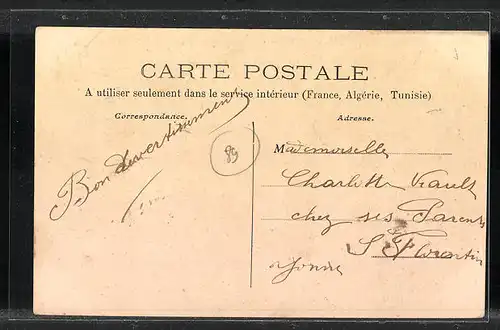 CARTE POSTALE
A utiliser seulement dans le service intérieur (France, Algérie, Tunisie)
Correspondance.
Adresse.
Bon divertissement
89
Mademoiselle
Charlotte
chez ses Parents
St Florentin
Yonne